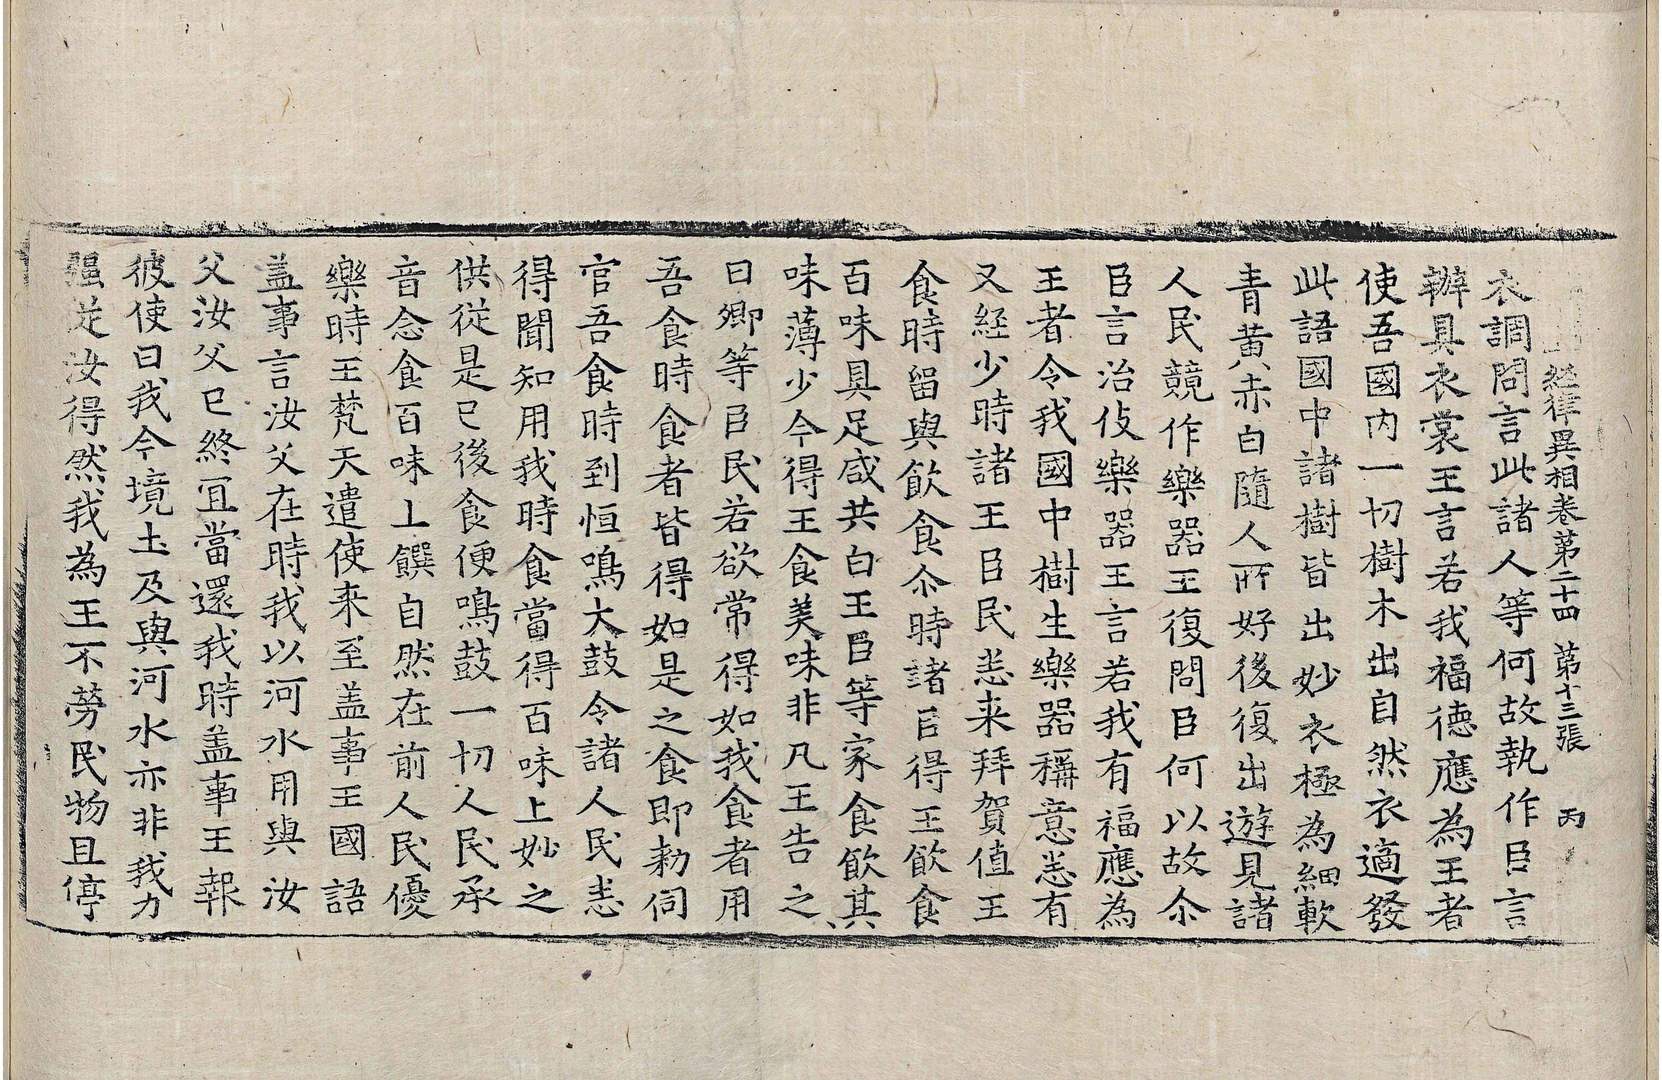 經律異相卷第二十四 第十三張 丙
衣調問言此諸人等何故執作臣言
辦具衣裳王言若我福德應為王者
使吾國内一切樹木出自然衣適發
此語國中諸樹皆出妙衣極為細軟
青黄赤白隨人所好後復出遊見諸
人民競作樂器王復問臣何以故尒
臣言治伎樂器王言若我有福應為
王者令我國中樹生樂器稱意恣有
又経少時諸王臣民恙来拜賀值王
食時留與飲食尒時諸臣得王飲食
百味具足咸共白王臣等家食飲其
味薄少今得王食美味非凡王告之
曰卿等臣民若欲常得如我食者用
吾食時食者皆得如是之食即勑伺
官吾食時到恒鳴大鼓令諸人民恚
得聞知用我時食當得百味上妙之
供從是已後食便鳴鼓一切人民承
音念食百味上饌自然在前人民優
樂時王梵天遣使来至盖事王國語
盖事言汝父在時我以河水用與汝
父汝父已終冝當還我時盖事王報
彼使曰我今境土及與河水亦非我力
彊従汝得然我為王不勞民物且停